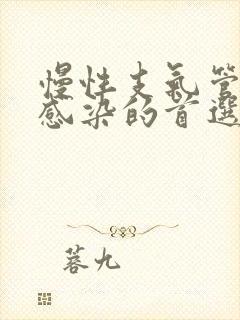 慢性支氣管
感染的首選
蓉九